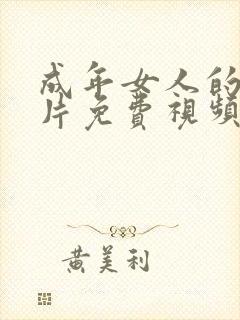 成年女人的
片免費視頻
黃美利